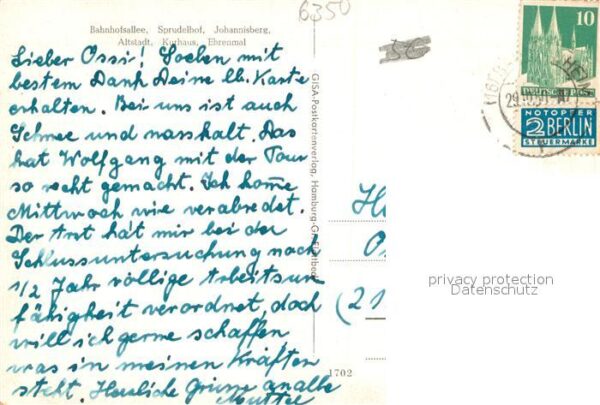 6350
Bahnhofsallee, Sprudelhof, Johannisberg,
Altstadt, Kurhaus, Ehrenmal
Lieber Ossi! Soeben mit
bestem Dank Deine lb. Karte
erhalten. Bei uns ist auch
Schnee und nasskalt. Das
hat Wolfgang mit der Tour
so recht gemacht. Ich kome
Mittwoch wie verabredet.
Der Arzt hat mir bei der
Schlussuntersuchung noch
1/2 Jahr völlige Arbeitsun
fähigkeit verordnet, doch
will ich gerne schaffen,
was in meinen Kräften
steht. Herzliche Grüsse an alle
Muttel
GISA-Postkartenverlag, Hamburg-
1702
10
DEUTSCHE POST
NOTOPFER
2 BERLIN
STEUERMARKE
(16)
HEIM
H
O
(21
privacy protection
Datenschutz